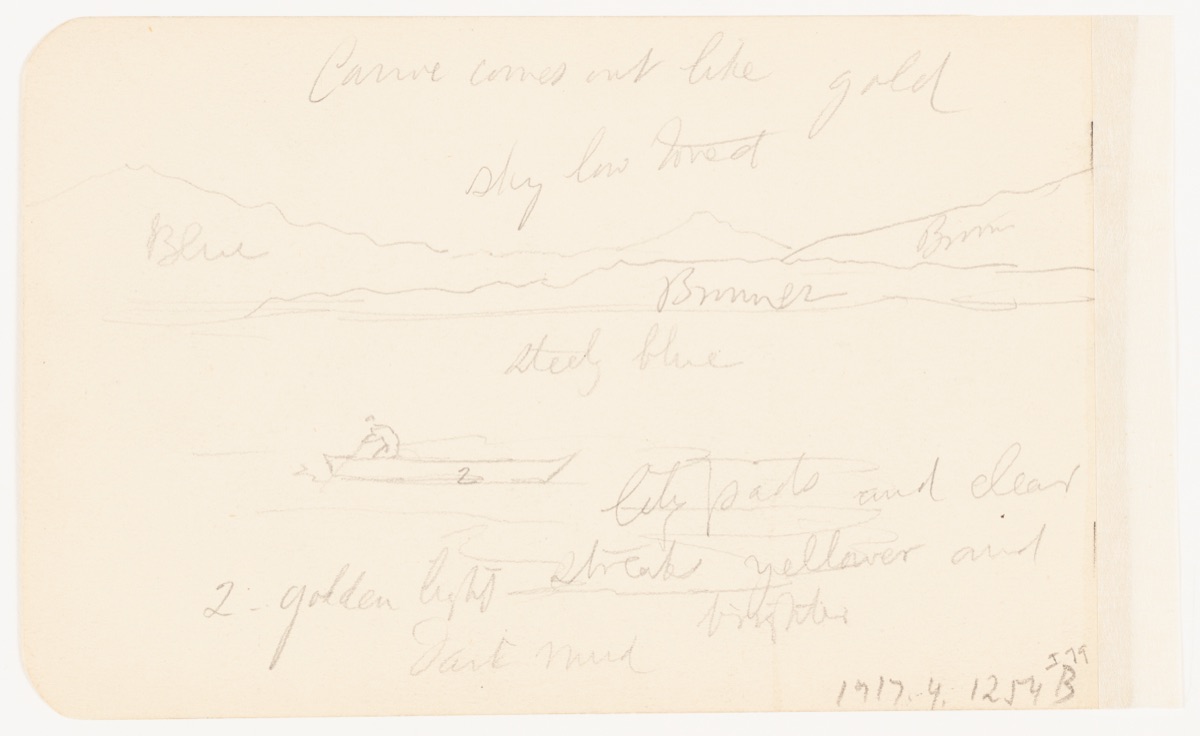 Canoe comes out like gold
sky low toned
Blue
Brown
Browner
steely blue
2
Lily pads and clear
streaks yellower and
brighter
2 - golden light
Dark mud
1917.4.1254B